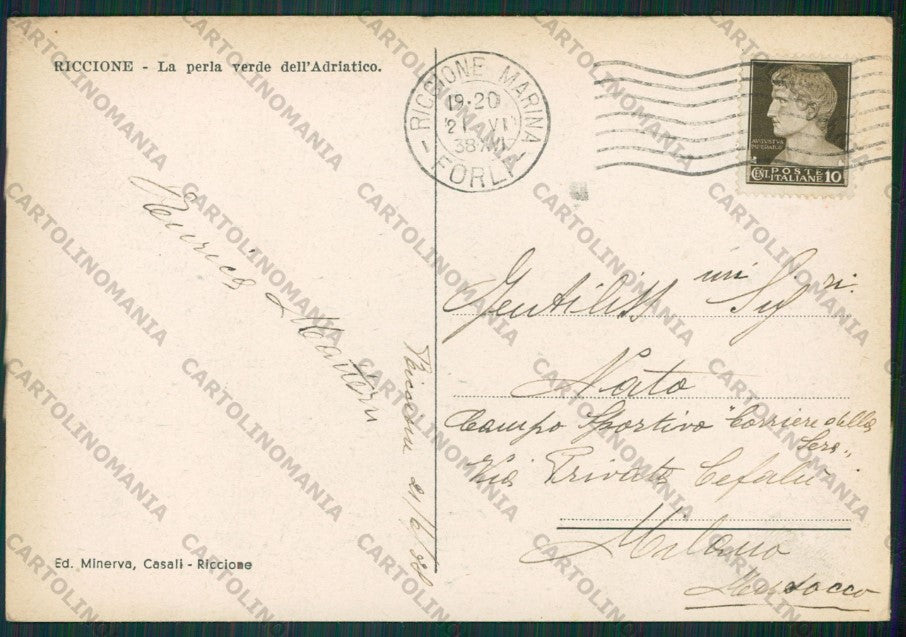 RICCIONE - La perla verde dell'Adriatico.
RICCIONE MARINA
19-20
21 VI
38 XVI
- FORLI -
AVGVSTVS
IMPERATOR
POSTE
CENT. ITALIANE 10
Enrica
Riccione 21/6/38
Gentiliss mi Sig ri.
Nato
Campo Sportivo "Corriere della
Sera"
Via Privata Cefalù
Milano
Musocco
Ed. Minerva, Casali - Riccione
CARTOLINOMANIA